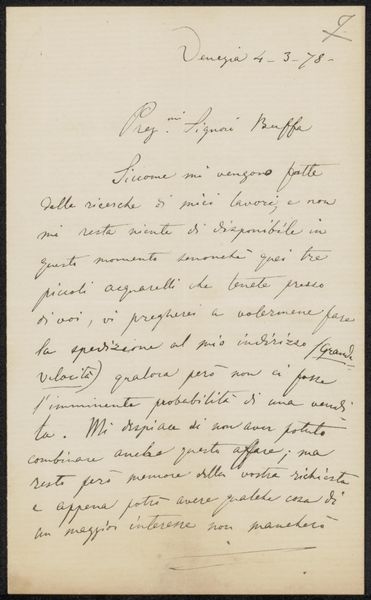 Venezia 4-3-78-
Preg.mi Signori Buffa
Siccome mi vengono fatte
delle ricerche di miei lavori, e non
mi resta niente di disponibile in
questo momento senonchè quei tre
piccoli acquarelli che tenete presso
di voi, vi pregherei a volermene fare
la spedizione al mio indirizzo (Grande
Velocità) qualora però non ci fosse
l'imminente probabilità di una vendi
ta. Mi dispiace di non aver potuto
combinare anche questo affare; ma
resto però memore della vostra richiesta
e appena potrò avere qualche cosa di
un maggior interesse non mancherò